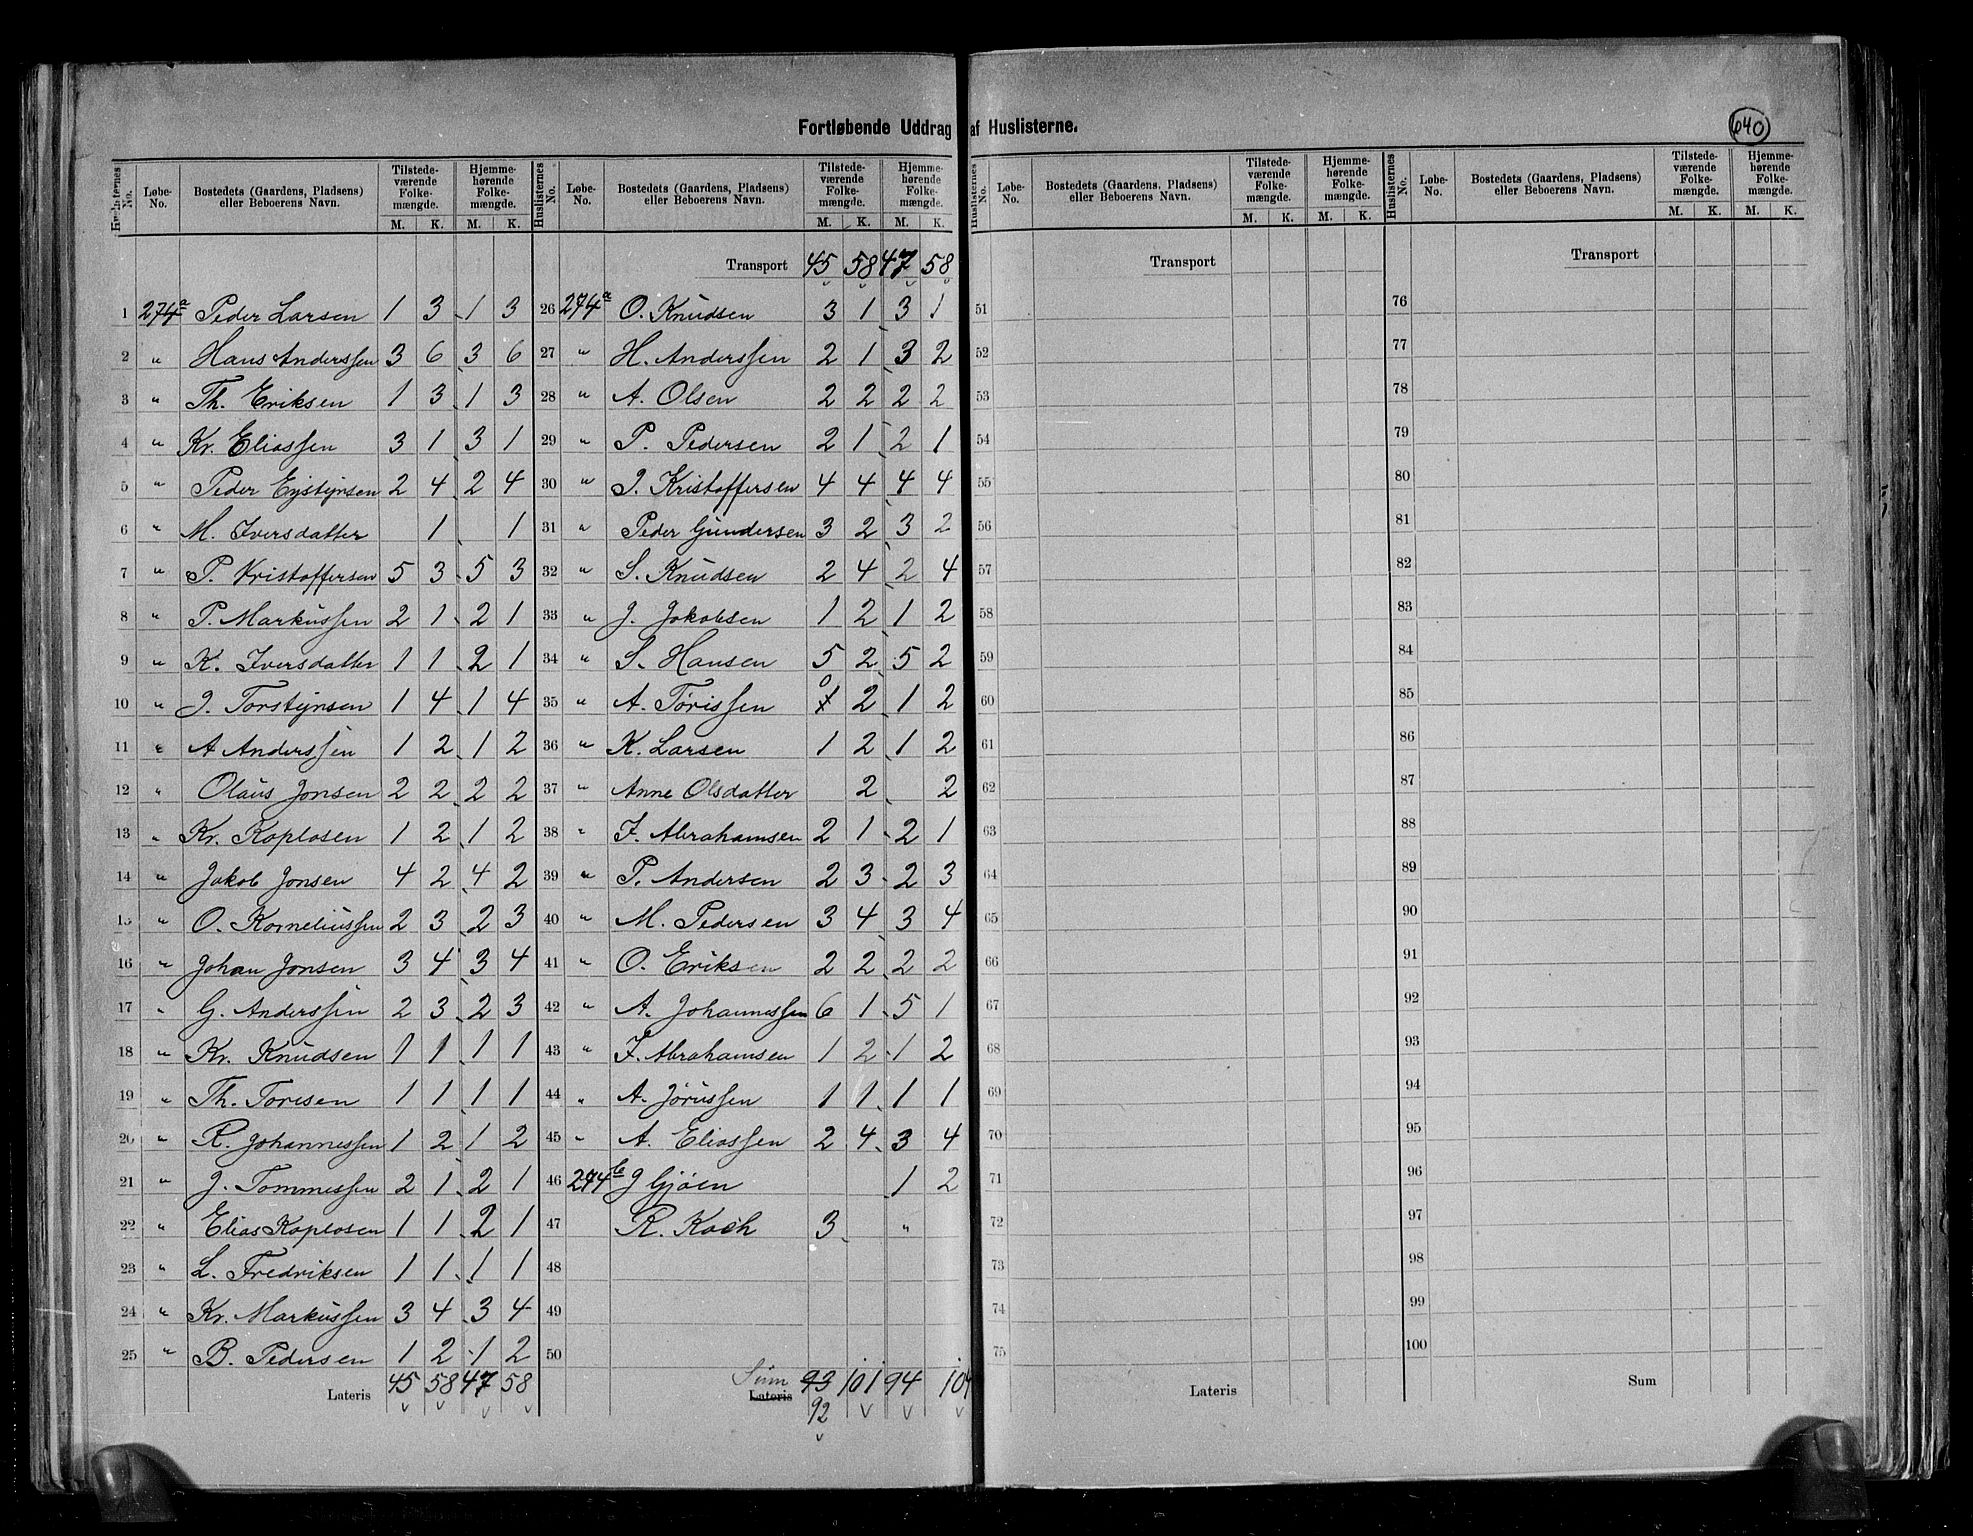 Fortløbende Uddrag af Huslisterne.
640
Huslisternes No. Løbe-No. Bostedets (Gaardens, Pladsens) eller Beboerens Navn. Tilstedeværende Folkemængde. M. K. Hjemmehørende Folkemængde. M. K.
Huslisternes No. Løbe-No. Bostedets (Gaardens, Pladsens) eller Beboerens Navn. Tilstedeværende Folkemængde. M. K. Hjemmehørende Folkemængde. M. K.
Huslisternes No. Løbe-No. Bostedets (Gaardens, Pladsens) eller Beboerens Navn. Tilstedeværende Folkemængde. M. K. Hjemmehørende Folkemængde. M. K.
Huslisternes No. Løbe-No. Bostedets (Gaardens, Pladsens) eller Beboerens Navn. Tilstedeværende Folkemængde. M. K. Hjemmehørende Folkemængde. M. K.
1 274a Peder Larsen 1 3 1 3
2 " Hans Anderssen 3 6 3 6
3 " Th. Eriksen 1 3 1 3
4 " Kr. Eliassen 3 1 3 1
5 " Peder Eystynsen 2 4 2 4
6 " M. Iversdatter 1 1
7 " P. Kristoffersen 5 3 5 3
8 " P. Markussen 2 1 2 1
9 " K. Iversdatter 1 1 2 1
10 " J. Torstynsen 1 4 1 4
11 " A Anderssen 1 2 1 2
12 " Olaus Jonsen 2 2 2 2
13 " Kr. Koplosen 1 2 1 2
14 " Jakob Jonsen 4 2 4 2
15 " O. Korneliussen 2 3 2 3
16 " Johan Jonsen 3 4 3 4
17 " G. Anderssen 2 3 2 3
18 " Kr. Knudsen 1 1 1 1
19 " Th. Torisen 1 1 1 1
20 " R. Johannessen 1 2 1 2
21 " J. Tommessen 2 1 2 1
22 " Elias Koplosen 1 1 2 1
23 " L. Fredriksen 1 1 1 1
24 " Kr. Markussen 3 4 3 4
25 " B. Pedersen 1 2 1 2
Lateris 45 58 47 58
Transport 45 58 47 58
26 274a O. Knudsen 3 1 3 1
27 " H. Anderssen 2 1 3 2
28 " A. Olsen 2 2 2 2
29 " P. Pedersen 2 1 2 1
30 " J. Kristoffersen 4 4 4 4
31 " Peder Gundersen 3 2 3 2
32 " S. Knudsen 2 4 2 4
33 " J. Jakobsen 1 2 1 2
34 " S. Hansen 5 2 5 2
35 " A. Törissen 1 0 2 1 2
36 " K. Larsen 1 2 1 2
37 " Anne Olsdatter 2 2
38 " F. Abrahamsen 2 1 2 1
39 " P. Andersen 2 3 2 3
40 " M. Pedersen 3 4 3 4
41 " O. Eriksen 2 2 2 2
42 " A. Johannessen 6 1 5 1
43 " F. Abrahamsen 1 2 1 2
44 " A. Jörussen 1 1 1 1
45 " A. Eliassen 2 4 3 4
46 274b J Gjöen 1 2
47 R. Koch 3 "
48
49
50
Sum Lateris 93 101 94 104
92
Transport
51
52
53
54
55
56
57
58
59
60
61
62
63
64
65
66
67
68
69
70
71
72
73
74
75
Lateris
Transport
76
77
78
79
80
81
82
83
84
85
86
87
88
89
90
91
92
93
94
95
96
97
98
99
100
Sum